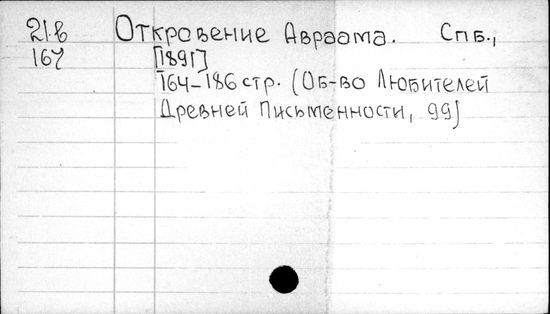 21.в Откровение Авраама. Спб.,
167 [1891]
164-186 стр. (Об-во Любителей
Древней Письменности, 99)